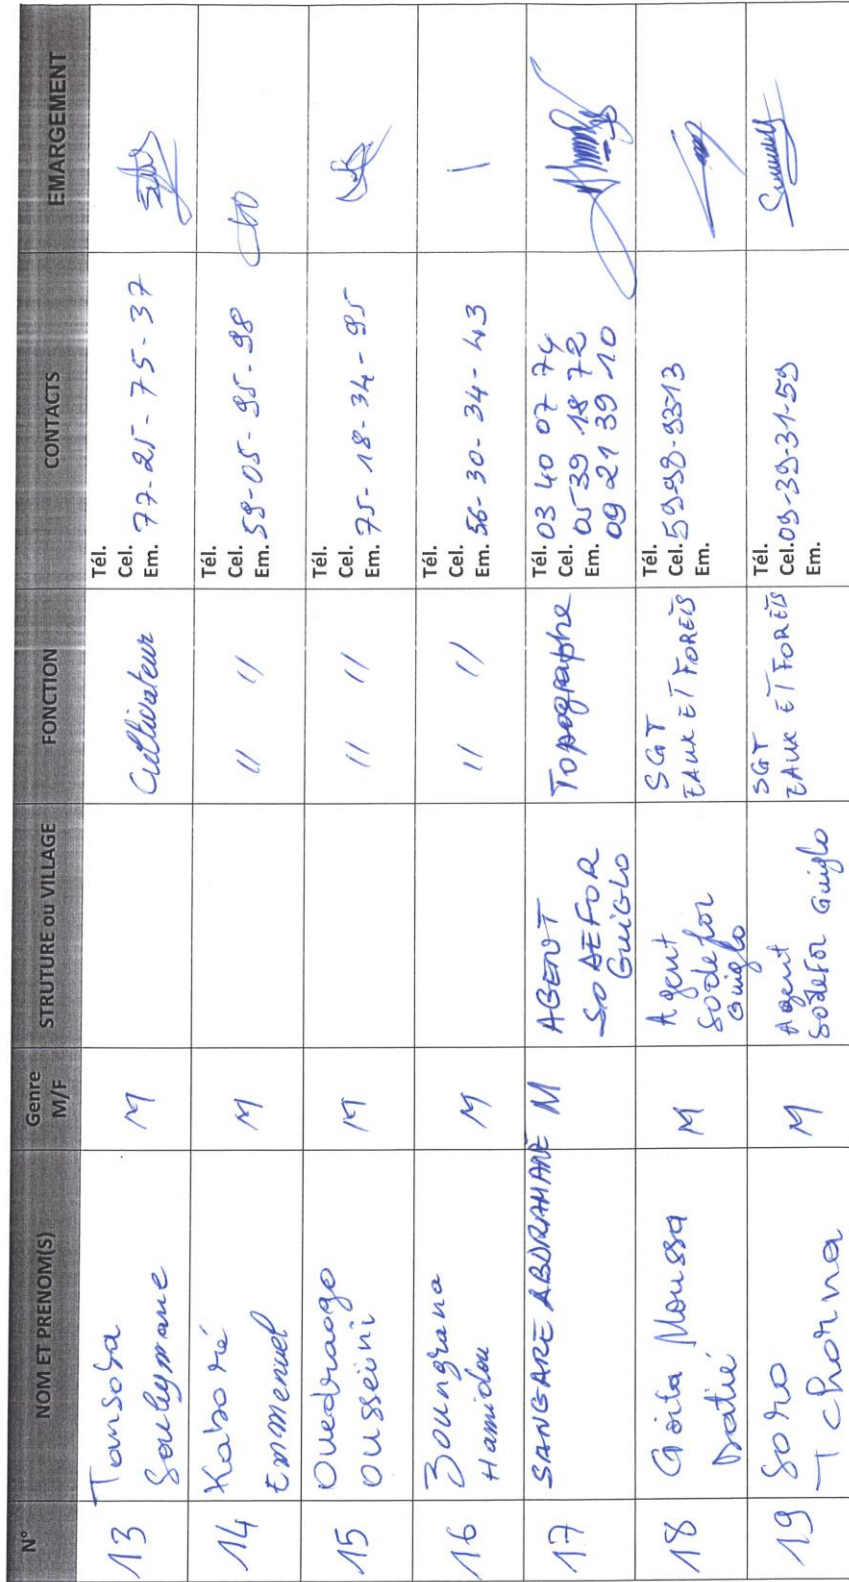 N° NOM ET PRENOM(S) Genre M/F STRUTURE ou VILLAGE FONCTION CONTACTS EMARGEMENT
13 Tounsoba Souleymane M Cultivateur Tél. Cel. Em. 77-25-75-37
14 Kaboré Emmenuel M // // Tél. Cel. Em. 59-05-95-98
15 Ouedraogo Ousseini M // // Tél. Cel. Em. 75-18-34-95
16 Zoungrana Hamidou M // // Tél. Cel. Em. 56-30-34-43
17 SANGARE ABDRAMANE M AGENT SODEFOR GUIGLO Topographe Tél. 03 40 07 74 Cel. 05 39 18 72 Em. 09 21 39 10
18 Goita Moussa M Agent Sodefor Guiglo SGT EAUX ET FORETS Tél. Cel. 59-98-93-13 Em.
19 Soro Tchorna M Agent Sodefor Guiglo SGT EAUX ET FORETS Tél. Cel. 09-39-31-59 Em.